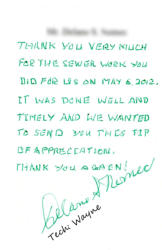 THANK YOU VERY MUCH
FOR THE SEWER WORK YOU
DID FOR US ON MAY 6, 2012.
IT WAS DONE WELL AND
TIMELY AND WE WANTED
TO SEND YOU THIS TIP
OF APPRECIATION.
THANK YOU AGAIN!
Tech: Wayne